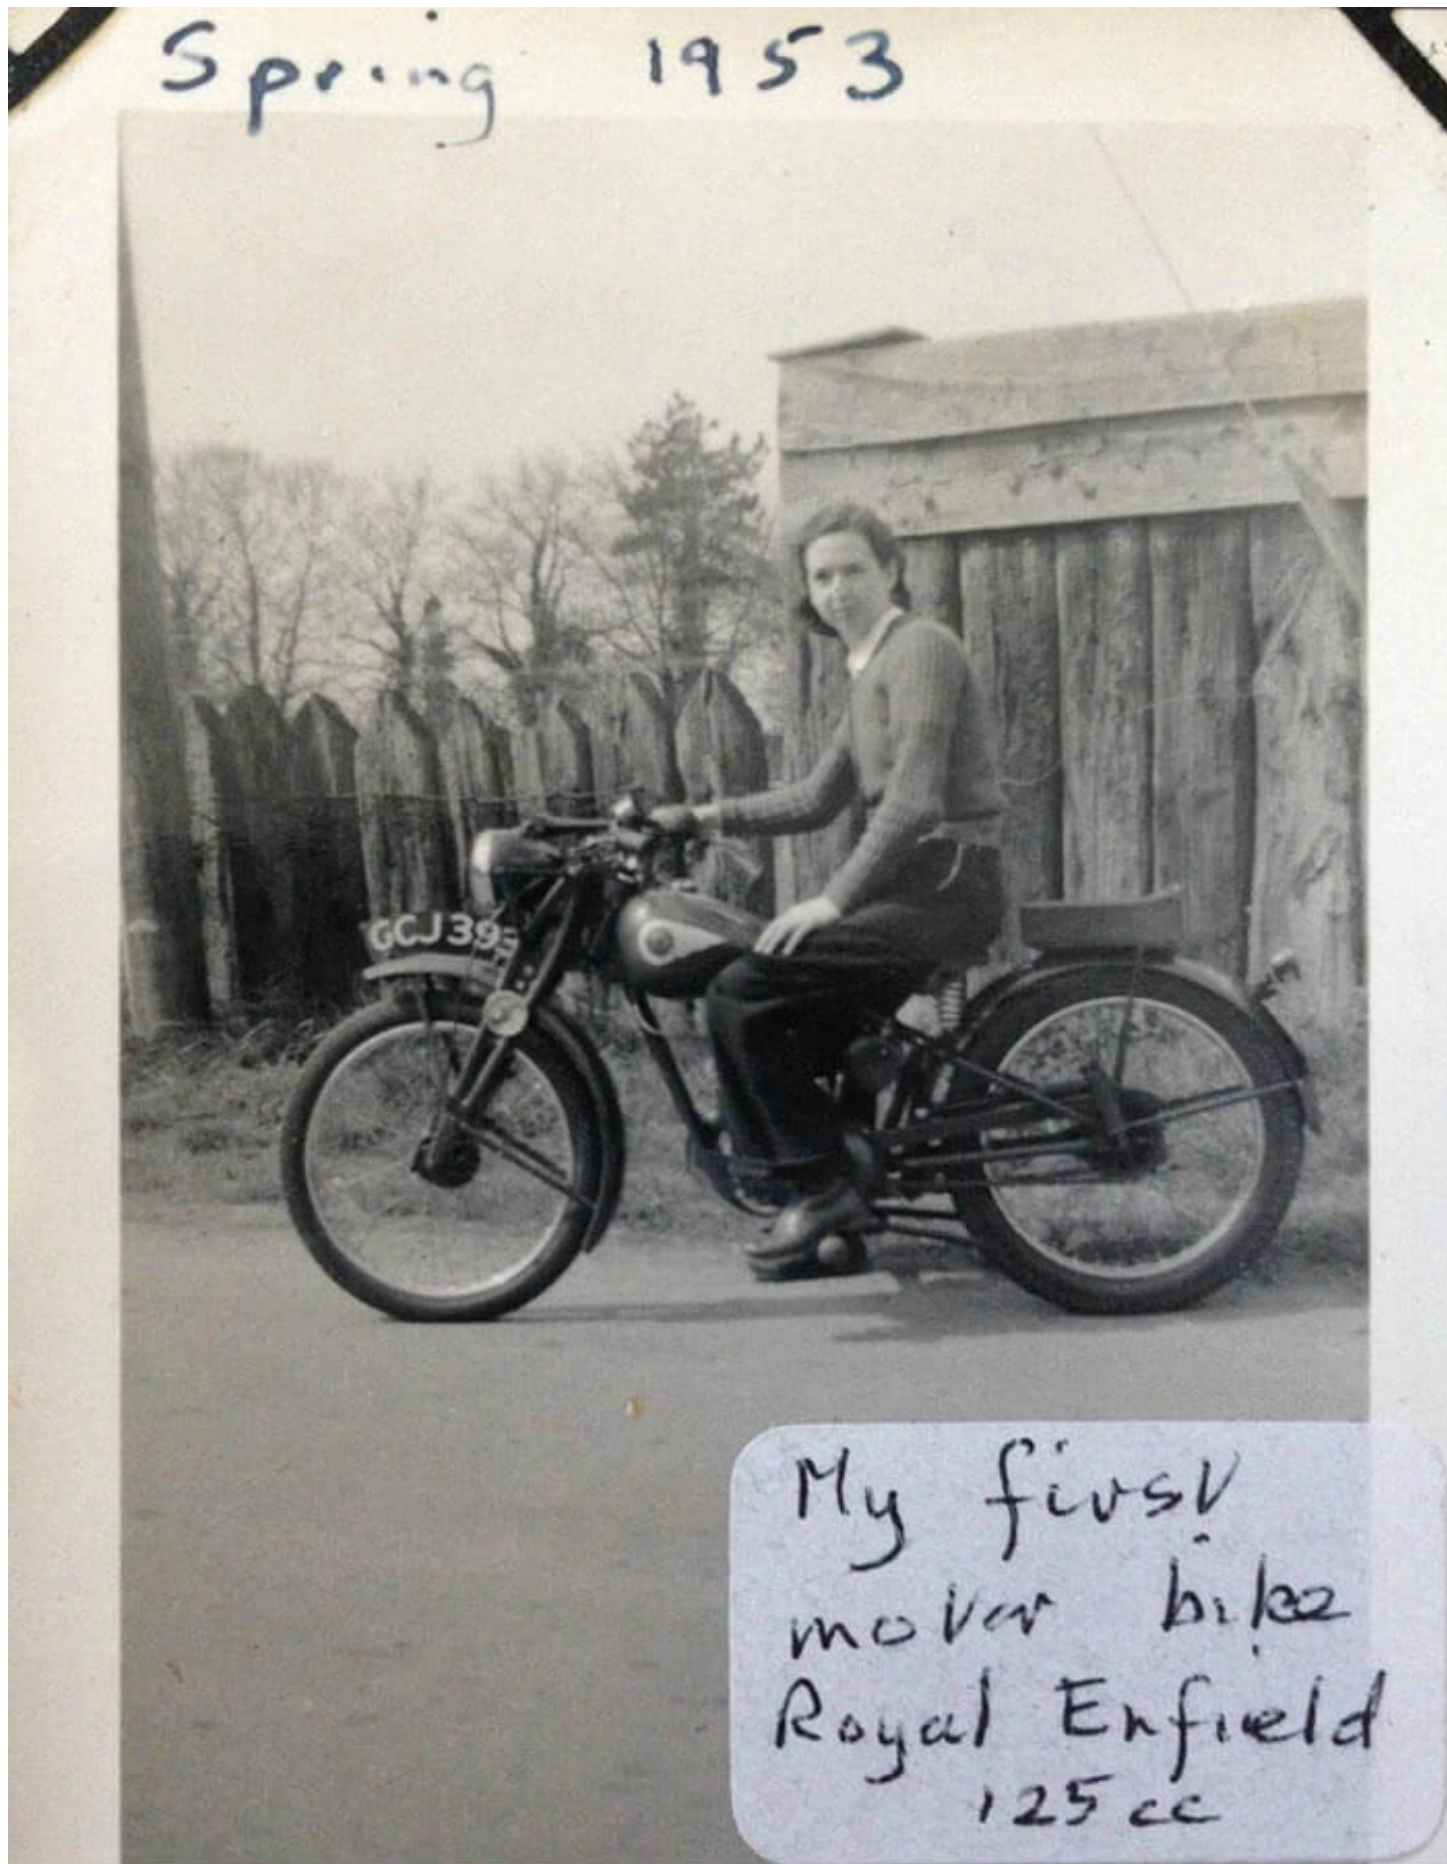 Spring 1953
GCJ 393
My first
motor bike
Royal Enfield
125 cc